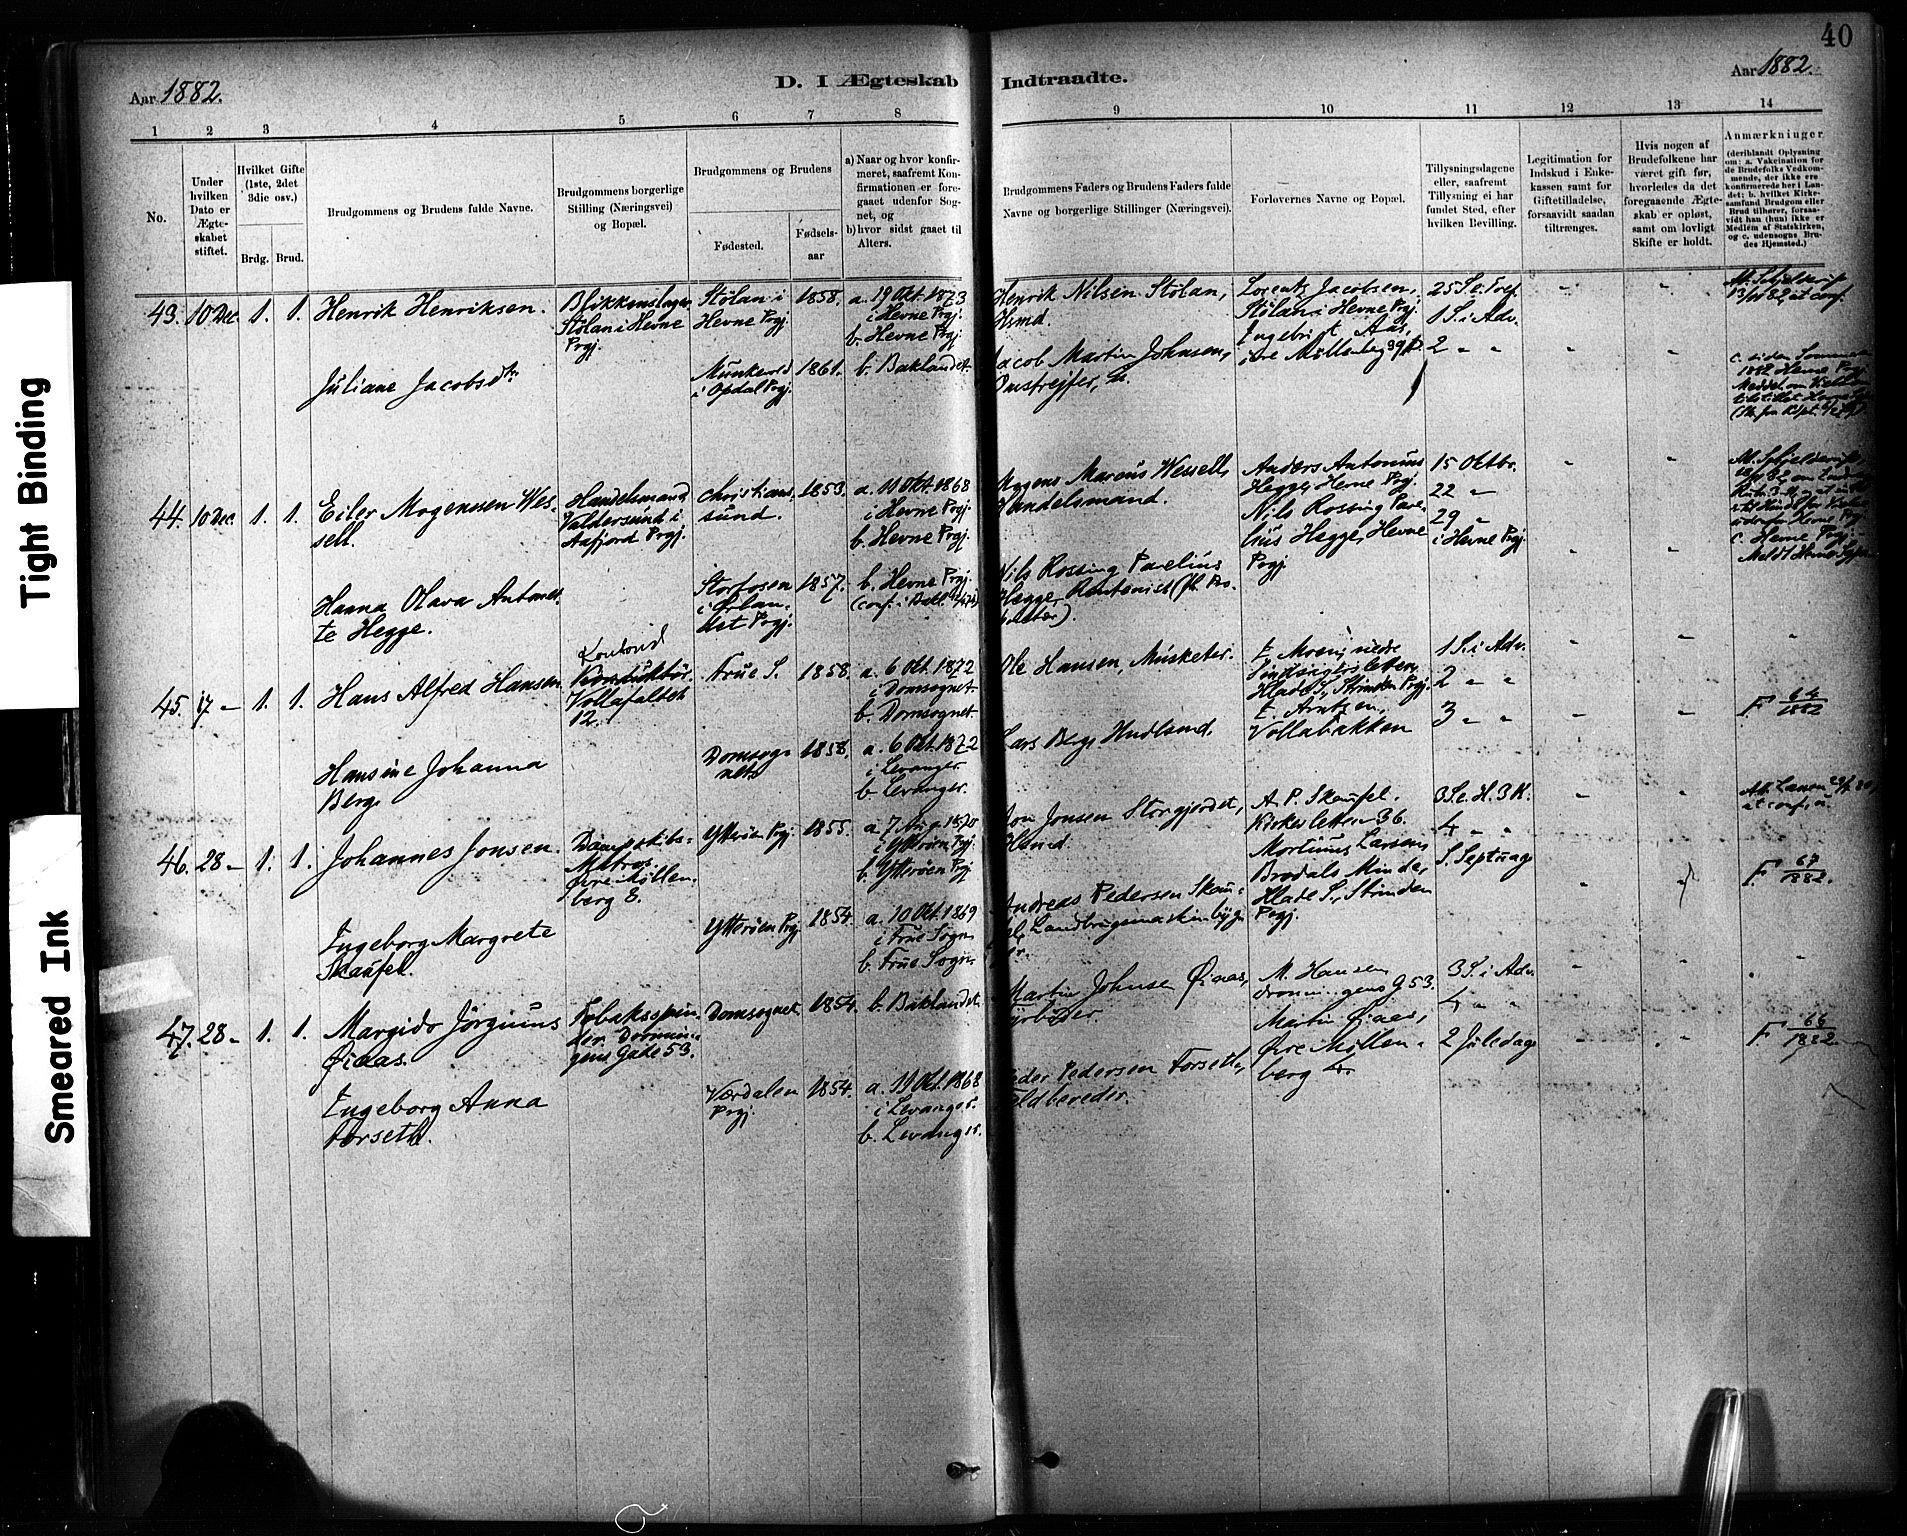 40
Aar 1882.
D. I Ægteskab Indtraadte.
Aar 1882.
1 2 3 4 5 6 7 8 9 10 11 12 13 14
No.
Under
hvilken
Dato er
Ægte-
skabet
stiftet.
Hvilket Gifte
(1ste, 2det
3die osv.)
Brdg. Brud.
Brudgommens og Brudens fulde Navne.
Brudgommens borgerlige
Stilling (Næringsvei)
og Bopæl.
Brudgommens og Brudens
Fødested.
Fødsels-
aar
a) Naar og hvor konfir-
meret, saafremt Kon-
firmationen er fore-
gaaet udenfor Sog-
net, og
b) hvor sidst gaaet til
Alters.
Brudgommens Faders og Brudens Faders fulde
Navne og borgerlige Stillinger (Næringsvei).
Forlovernes Navne og Bopæl.
Tillysningsdagene
eller, saafremt
Tillysning ei har
fundet Sted, efter
hvilken Bevilling.
Legitimation for
Indskud i Enke-
kassen samt for
Giftetilladelse,
forsaavidt saadan
tiltrænges.
Hvis nogen af
Brudefolkene har
været gift før,
hvorledes da det
foregaaende Ægte-
skab er opløst,
samt om lovligt
Skifte er holdt.
Anmærkninger
(deriblandt Oplysning
om: a. Vakcination for
de Brudefolks Vedkom-
mende, der ikke ere
konfirmerede her i Lan-
det; b. hvilket Kirke-
samfund Brudgom eller
Brud tilhører, forsaa-
vidt han (hun) ikke er
Medlem af Statskirken,
og c. udensogns Bru-
des Hjemsted.)
43. 10 Dec 1. 1. Henrik Henriksen.
Stølan i Hevne
Prgj.
Stølan i
Hevne Prgj.
1858.
a. 19 Okt. 1873
i Hevne Prgj.
b. Hevne Prgj.
Henrik Nilsen Stølan,
Hsmd.
Lorentz Jacobsen,
Stølan i Hevne Prgj.
1 S. i Adv.
Juliane Jacobsdtr
i Opdal Prgj.
1861.
b. Baklandet.
Jacob Martin Johnsen,
2 " "
44. 10 Dec. 1. 1. Eiler Mogenssen Wes-
sell.
Handelsmand
Valdersund i
Aafjord Prgj.
Christians-
sund.
1853.
a. 11 Okt. 1868
i Hevne Prgj.
b. Hevne Prgj.
Mogens Marcus Wessell,
Handelsmand.
Anders Antonius
Hegge, Hevne Prgj.
Nils Rossing Pave-
lius Hegge, Hevne
Prgj
15 Oktbr.
22 "
29 "
i Hevne Prgj.
c. Hevne Prgj.
Hanna Olava Antonet-
te Hegge.
Storfosen
i Ørlan-
det Prgj.
1857.
b. Hevne Prgj.
Nils Rossing Pavelius
Hegge,
45. 17 " 1. 1. Hans Alfred Hansen.
12.
Frue S.
1858.
a. 6 Okt. 1872
i Domsognet
b. Domsognet.
Ole Hansen, Musketer.
Hlade S., Strinden Prgj.
E. Arntzen,
Vollabakken
1 S. i Adv.
2 " "
3 " "
F. 64/1882
Hansine Johanna
Berg.
Domsog-
net
1858.
a. 6 Okt. 1872
i Levanger.
b. Levanger.
46. 28 " 1. 1. Johannes Jonsen.
Dampskibs-
Matros
Øvre Møllen-
berg 8.
Ytterøen Prgj.
1855.
a. 7 Aug. 1870
i Ytterøen Prgj.
b. Ytterøen Prgj.
Jon Jonsen Storgjerdet,
A. P. Skaufel.
Kirkesletten 36.
Mortinus Larsen,
Brodals Minde,
Hlade S., Strinden
Prgj.
3 S. e. H. 3 K.
4 " "
S. Septuag
F. 67/1882.
Ingeborg Margrete
Skaufel.
Ytterøen Prgj
1854
a. 10 Okt. 1869
i Frue Sogn
b. Frue Sogn.
Andreas Pedersen Skau-
47. 28 " 1. 1. Margido Jørginus
Øiaas.
Tobaksspin-
der Dronnin-
gens Gade 53.
Domsognet
1854.
b. Baklandet.
Martin Johnsen Øiaas,
Fyrbøder
M. Hansen
Dronningens G 53.
Martin Øiaas,
Øvre Møllen-
berg
3 S. i Adv.
4 " "
2 Juledag
F. 66/1882
Ingeborg Anna
Forseth.
Værdalen
Prgj.
1854.
a. 19 Okt. 1868
i Levanger.
b. Levanger.
Peder Pedersen Forseth,
Feldbereder.
Tight Binding
Smeared Ink